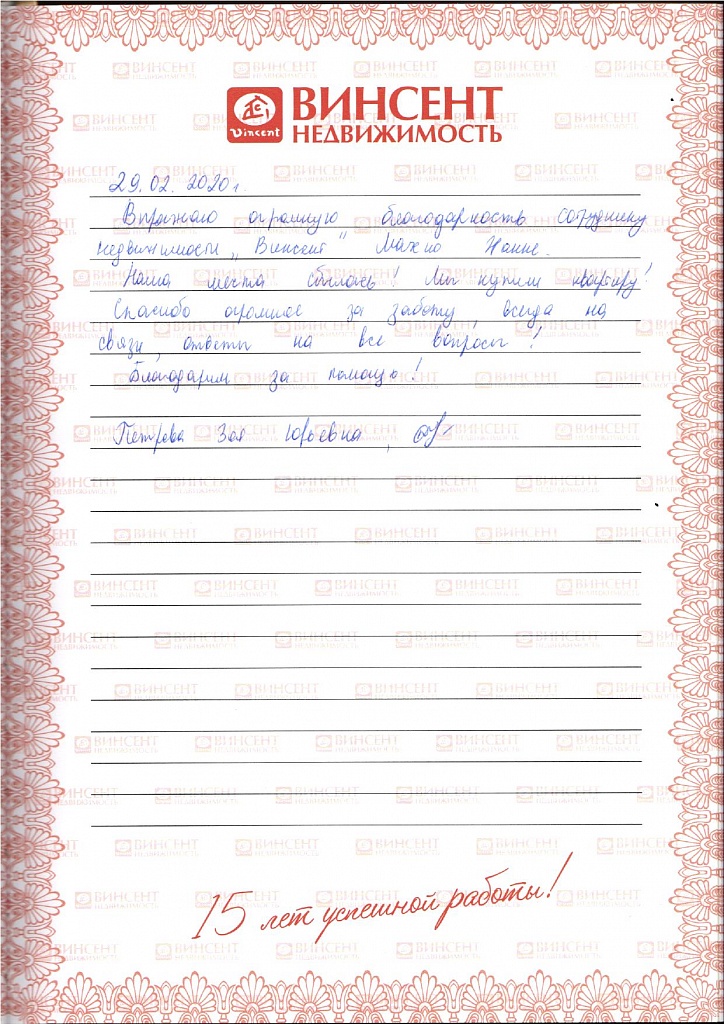 Vincent
ВИНСЕНТ
НЕДВИЖИМОСТЬ
29.02.2020г.
Выражаю огромную благодарность сотруднику
недвижимости „Винсент" Махно Жанне.
Наша мечта сбылась! Мы купили квартиру!
Спасибо огромное за заботу, всегда на
связи, ответы на все вопросы!
Благодарим за помощь!
Петрова Зоя Юрьевна,
15 лет успешной работы!